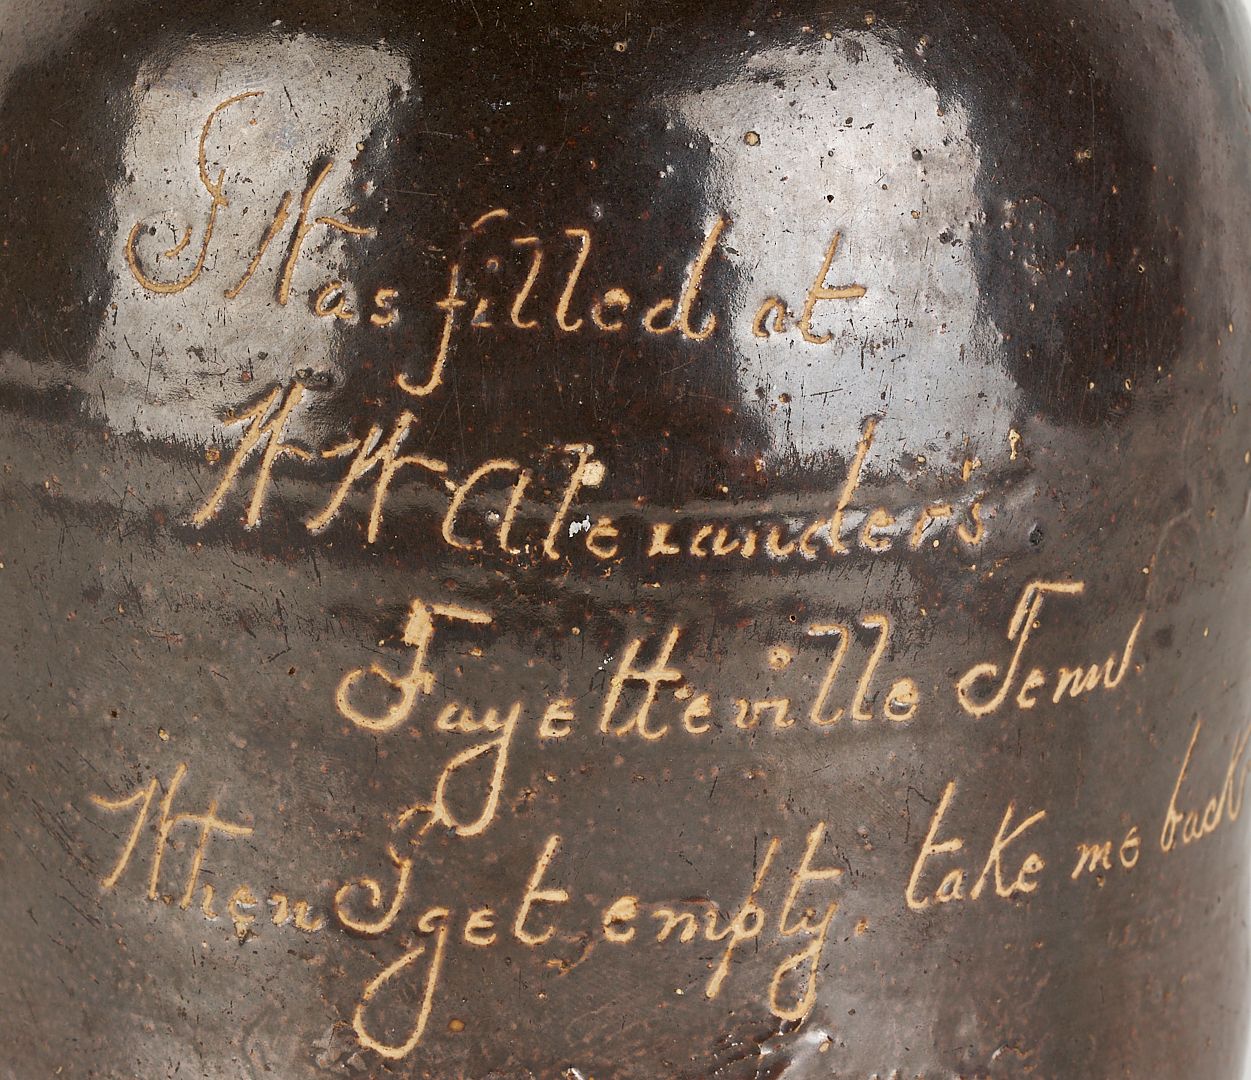 I Was filled at
W W Alexanders
Fayetteville Tenn.
When I get empty. take me back